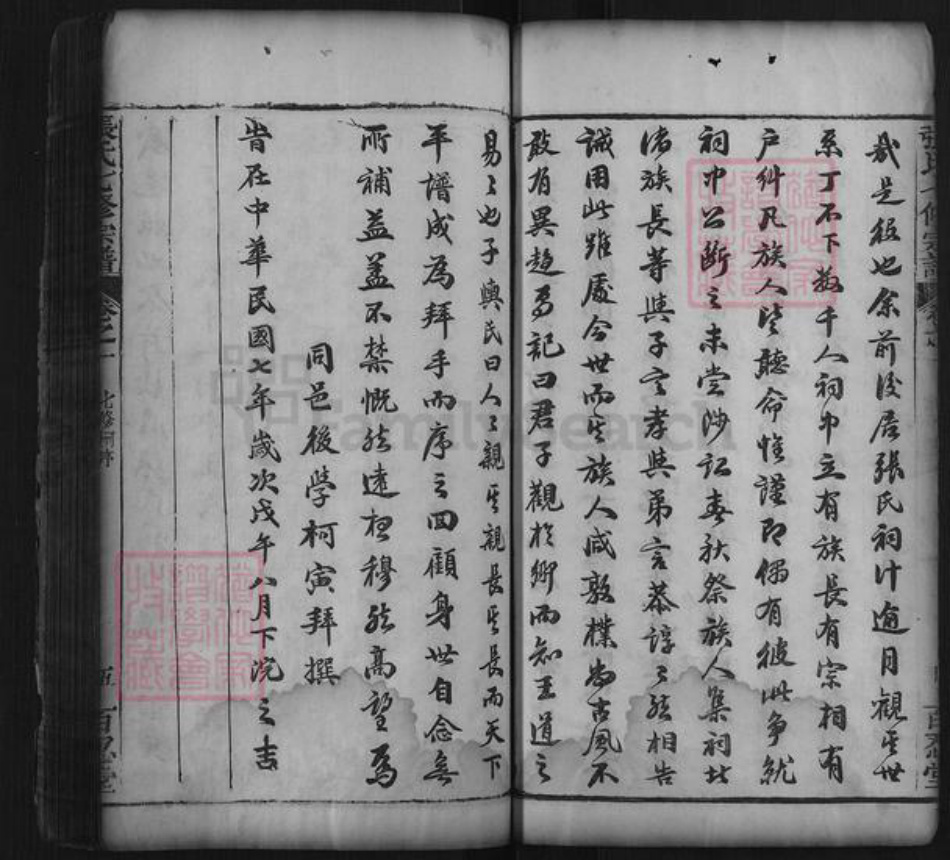 哉是役也余前後居張氏祠計逾月觀其世
系丁不下數千人祠中立有族長有宗相有
戶糾凡族人皆聽命惟謹即偶有彼此爭就
祠中公斷之未嘗涉訟春秋祭族人集祠
諸族長等與子言孝與弟言恭諄諄然相告
誡用此雖處今世而其族人咸敦樸尚古風不
敢有異趨焉記曰君子觀於鄉而知王道之
易易也子輿氏曰人人親其親長其長而天下
平譜成為拜手而序之回顧身世自念無
所補益蓋不禁慨然遠穆然高望焉
同邑後學柯寅拜撰
時在中華民國七年歲次戊午八月下浣之吉
張氏七修宗譜
卷之一
百忍堂
FamilySearch